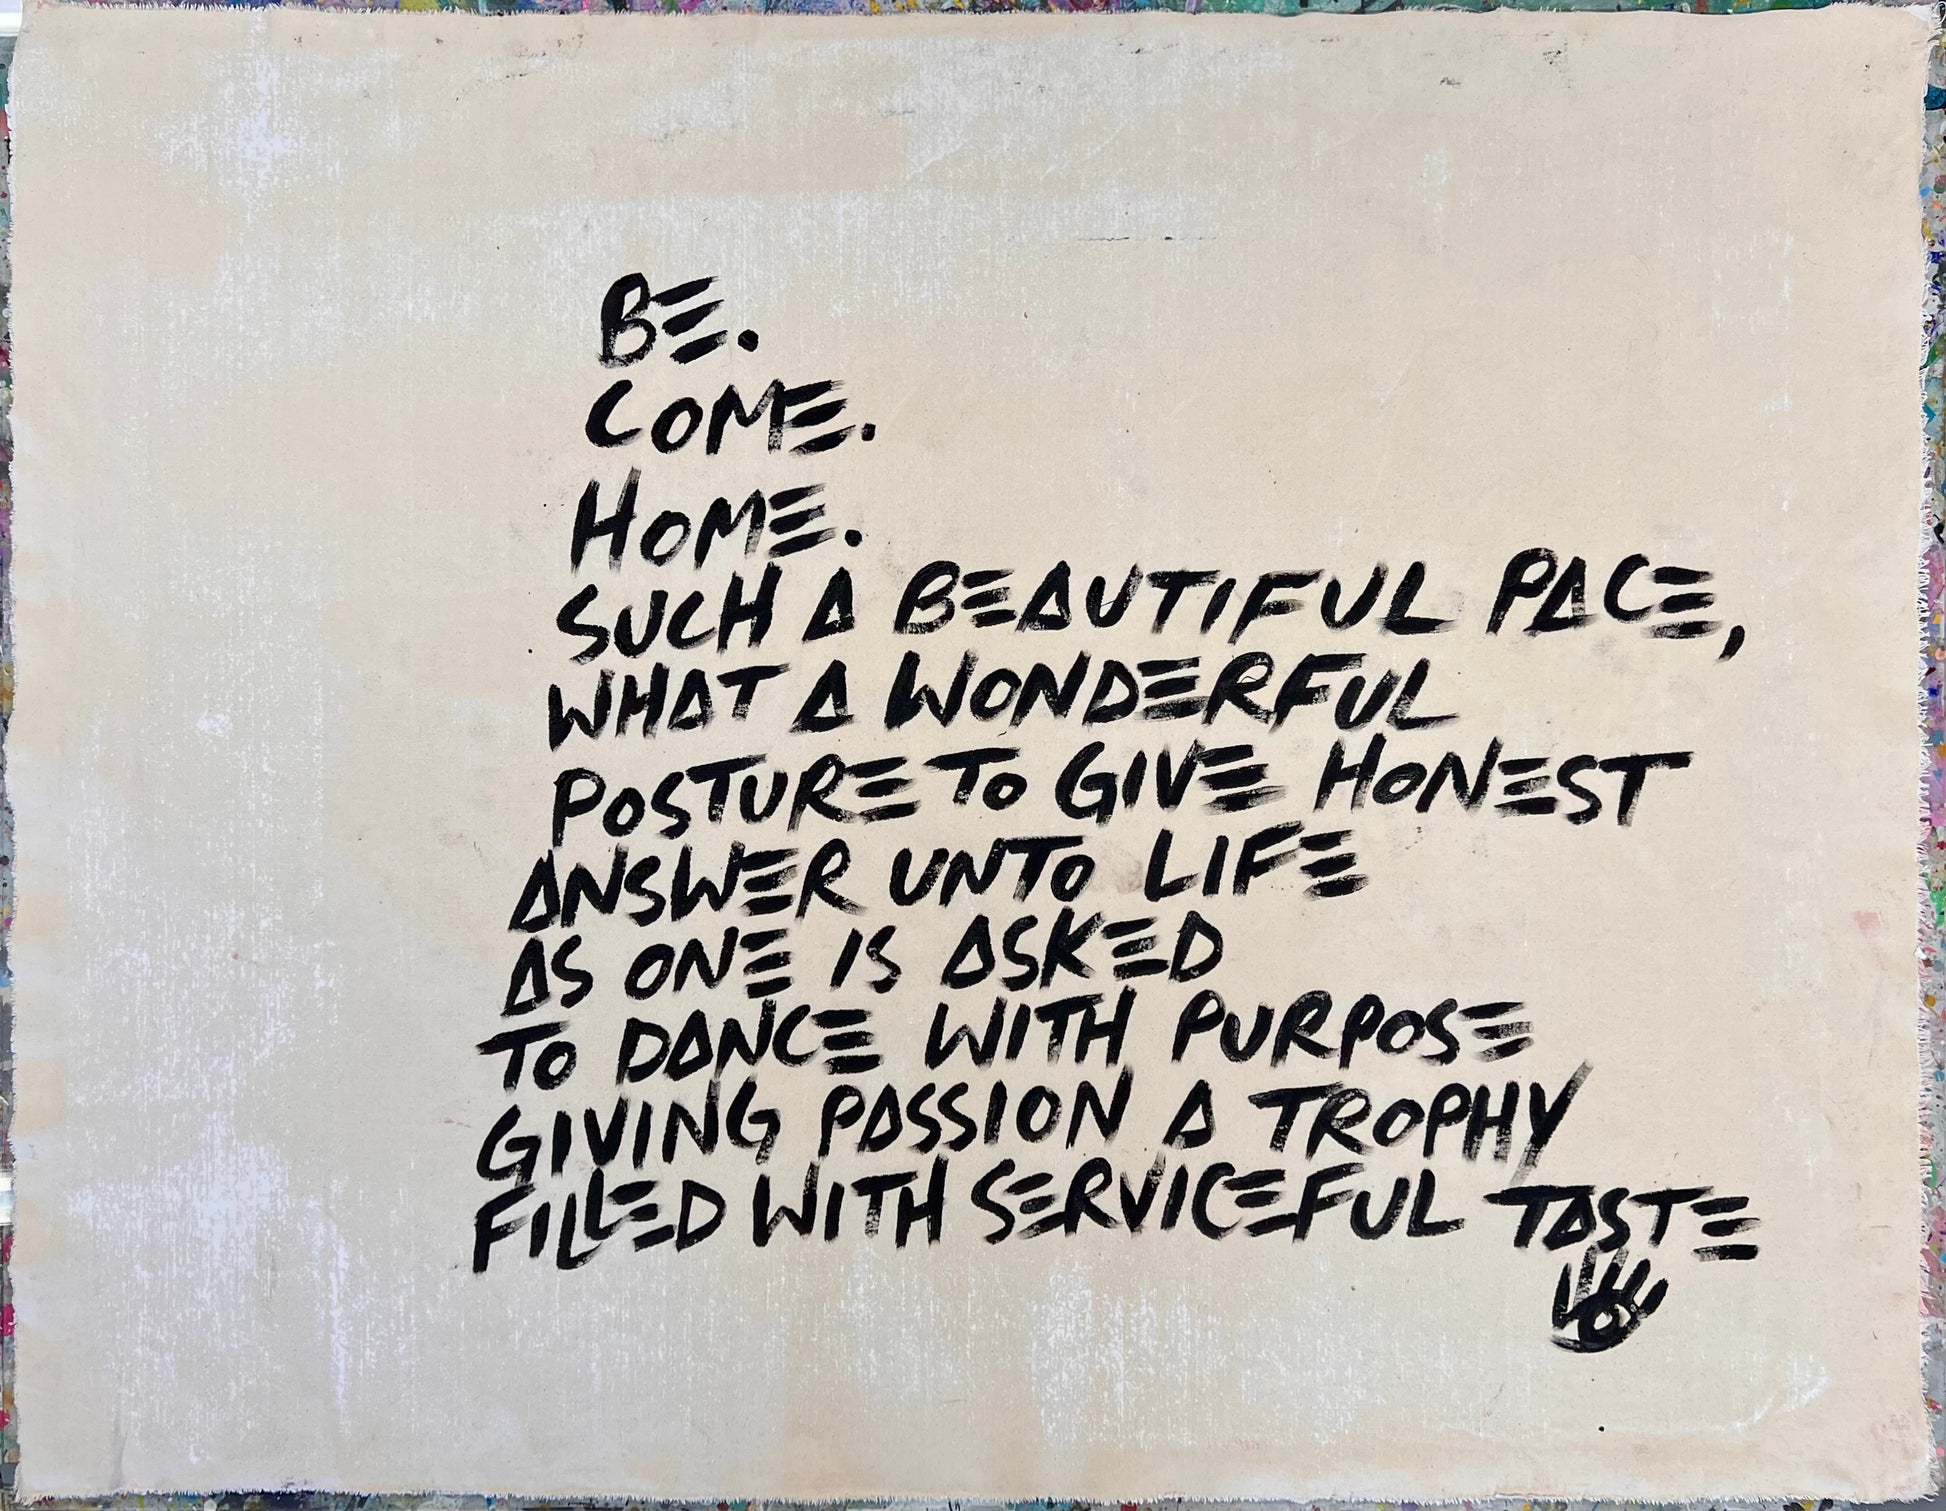 BE.
COME.
HOME.
SUCH A BEAUTIFUL PACE,
WHAT A WONDERFUL
POSTURE TO GIVE HONEST
ANSWER UNTO LIFE
AS ONE IS ASKED
TO DANCE WITH PURPOSE
GIVING PASSION A TROPHY
FILLED WITH SERVICEFUL TASTE